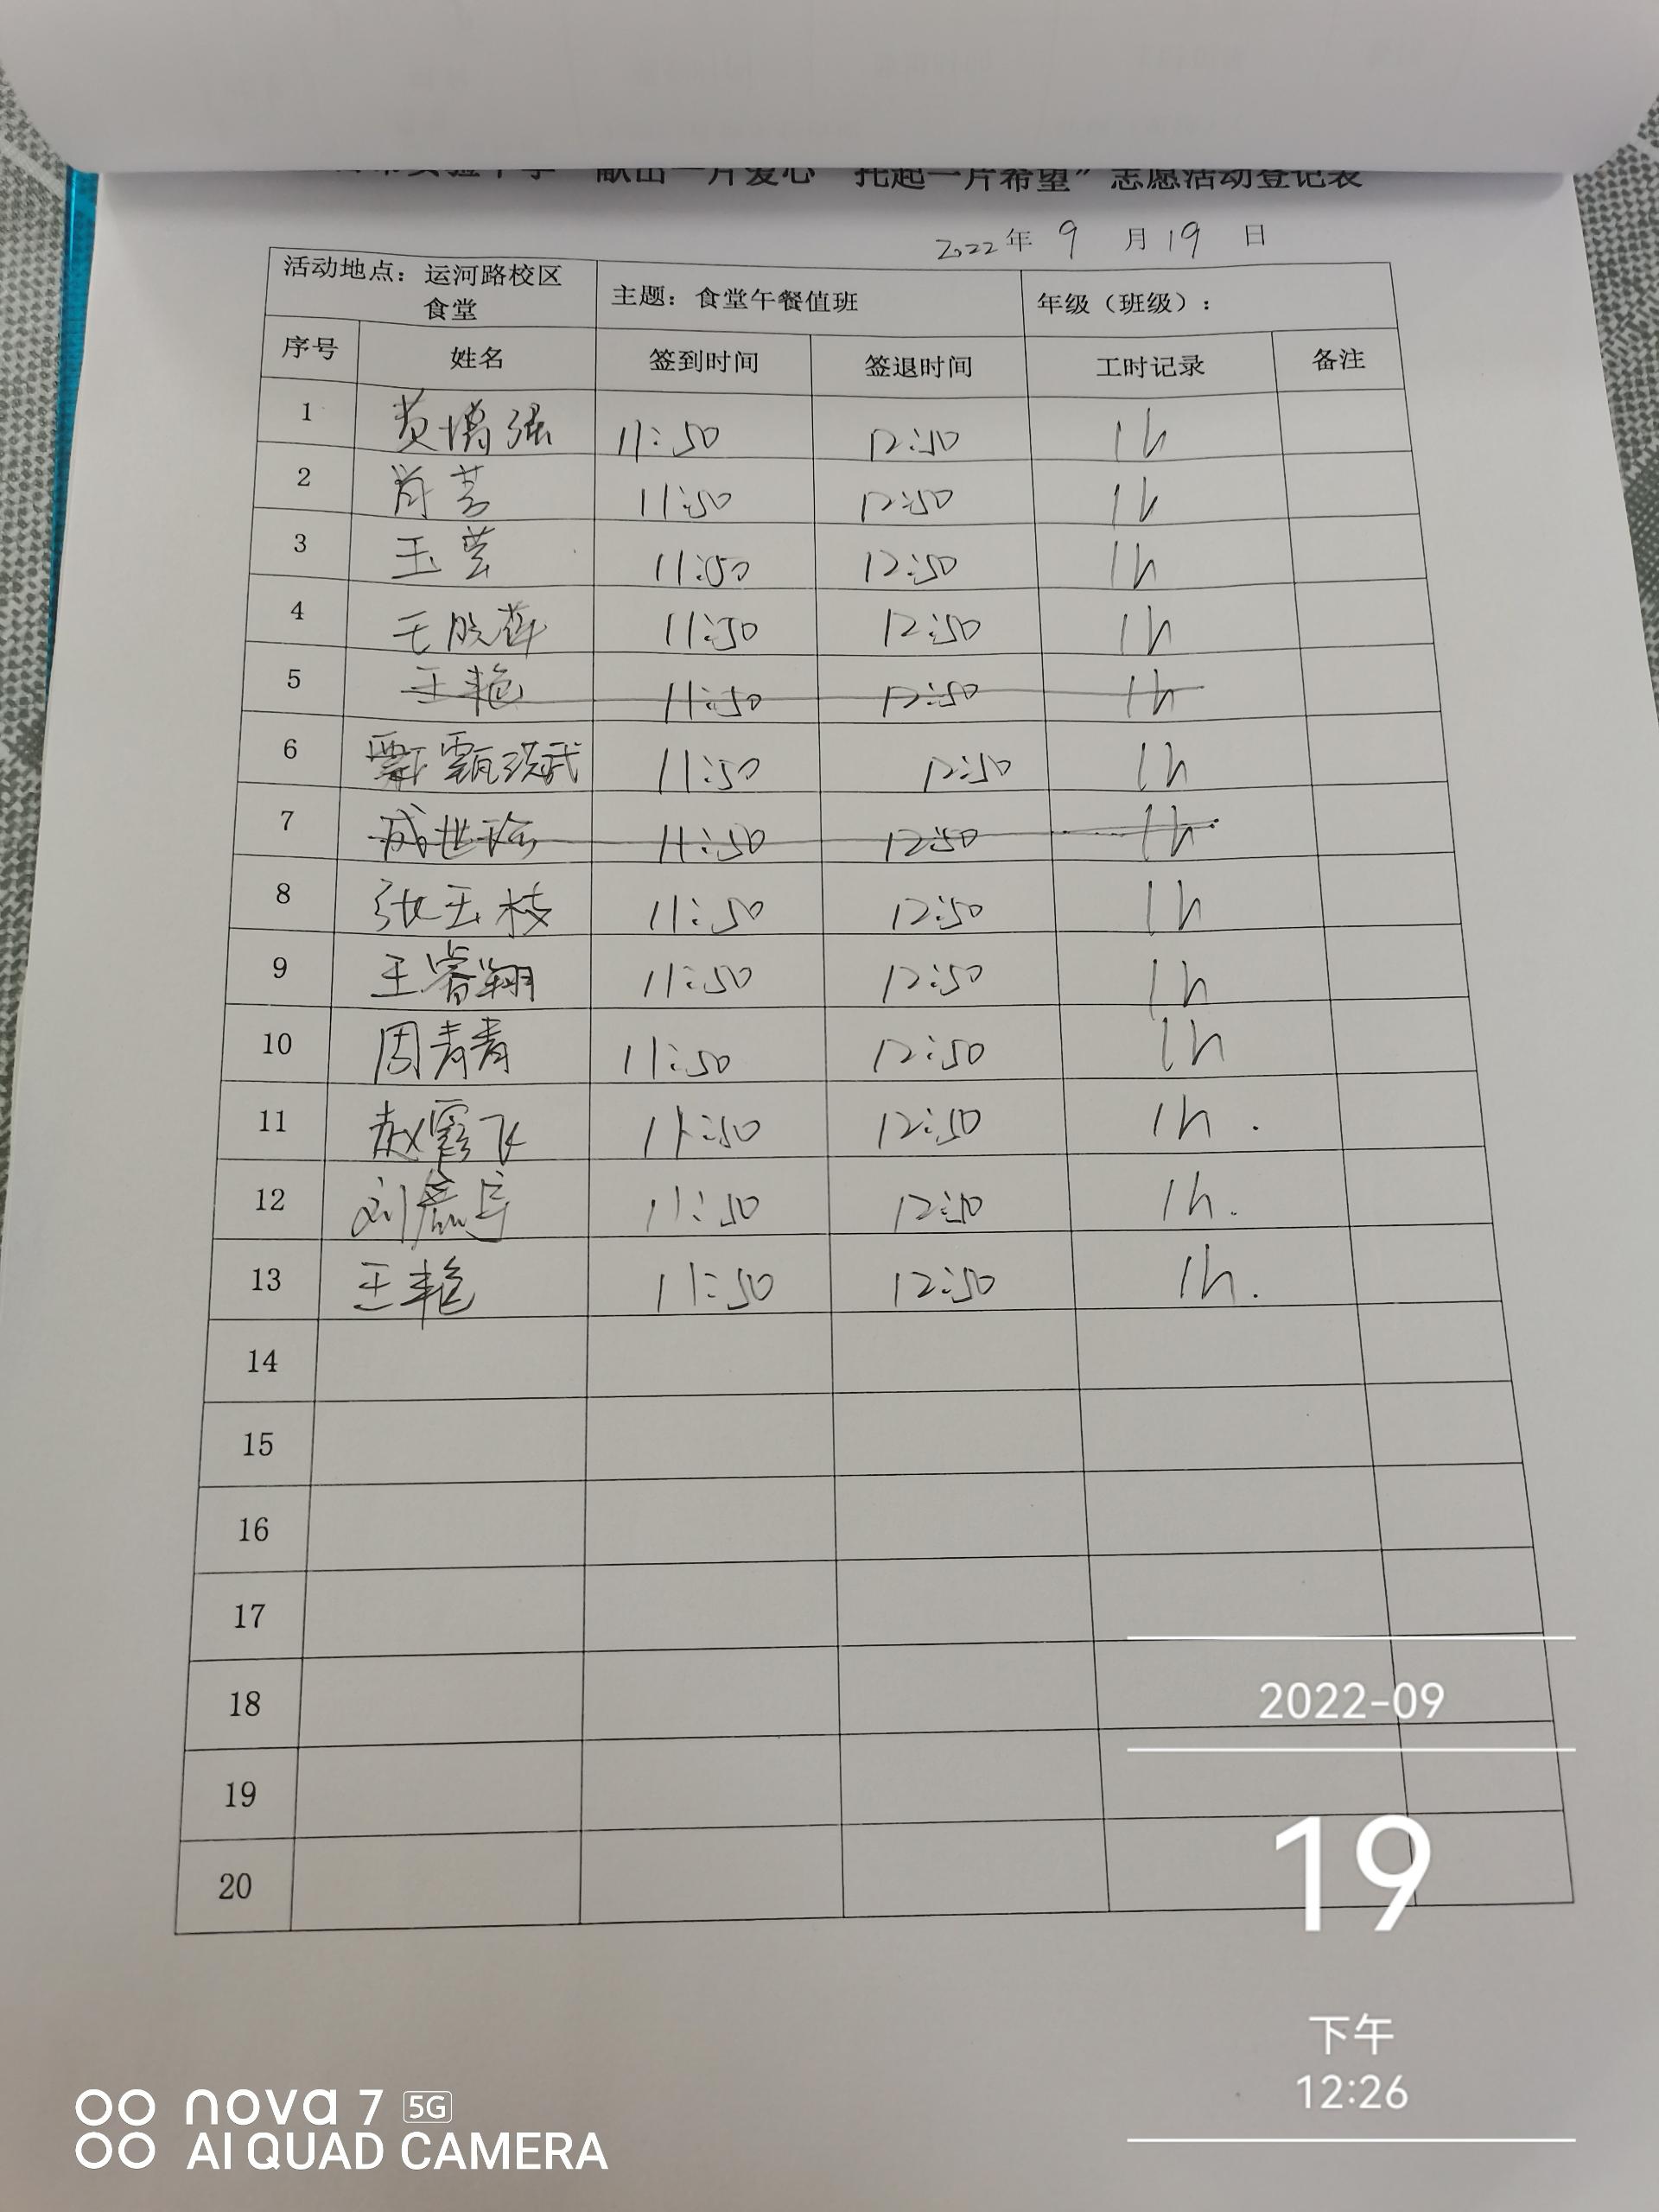 献出一片爱心 托起一片希望”志愿活动登记表
2022年 9 月 19 日
活动地点：运河路校区食堂 主题：食堂午餐值班 年级（班级）：
序号 姓名 签到时间 签退时间 工时记录 备注
1 黄增强 11:50 12:50 1h
2 肖芸 11:50 12:50 1h
3 王芸 11:50 12:50 1h
4 11:50 12:50 1h
5 王艳 11:50 12:50 1h
6 11:50 12:50 1h
7 11:50 12:50 1h
8 张玉枝 11:50 12:50 1h
9 王睿翔 11:50 12:50 1h
10 周青青 11:50 12:50 1h
11 赵霞飞 11:50 12:50 1h.
12 11:50 12:50 1h.
13 王艳 11:50 12:50 1h.
14
15
16
17
18
19
20
2022-09
19
下午
12:26
nova 7 5G
AI QUAD CAMERA